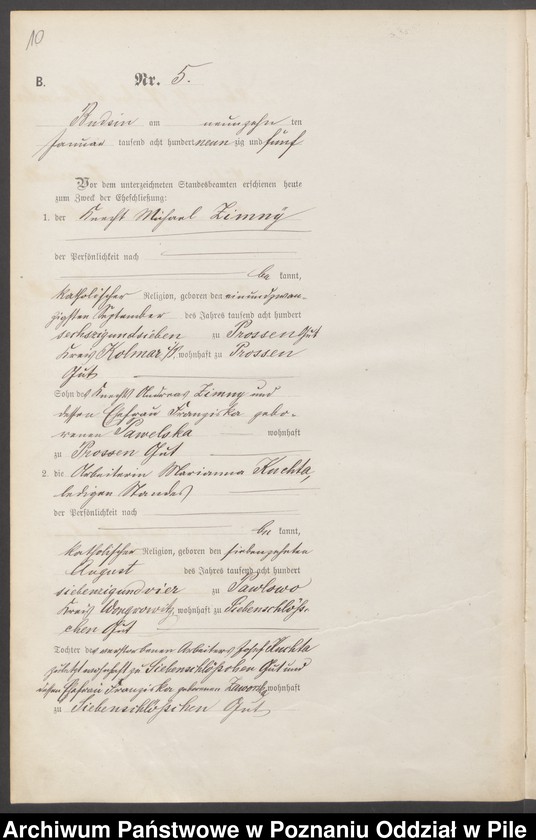 10
B. Nr. 5.
Budsin am neunzehn ten
Januar tausend acht hundert neun zig und fünf
Vor dem unterzeichneten Standesbeamten erschienen heute
zum Zweck der Eheschließung:
1. der Knecht Michael Zimny
der Persönlichkeit nach
be kannt,
katholischer Religion, geboren den einundzwan-
zigsten September des Jahres tausend acht hundert
sechszigundsieben zu Prossen Gut
Kreis Kolmar i/P, wohnhaft zu Prossen
Gut
Sohn des Knechts Andreas Zimny und
dessen Ehefrau Franziska gebo-
renen Pawelska wohnhaft
zu Prossen Gut
2. die Arbeiterin Marianna Kuchta,
ledigen Standes
der Persönlichkeit nach
be kannt,
katholischer Religion, geboren den siebenzehnten
August des Jahres tausend acht hundert
siebenzigundvier zu Pawlowo
Kreis Wongrowitz, wohnhaft zu Siebenschlöß-
chen Gut
Tochter des verstorbenen Arbeiters Josef Kuchta
zuletzt wohnhaft zu Siebenschlößchen Gut und
dessen Ehefrau Franziska geborenen wohnhaft
zu Siebenschlößchen Gut
Archiwum Państwowe w Poznaniu Oddział w Pile